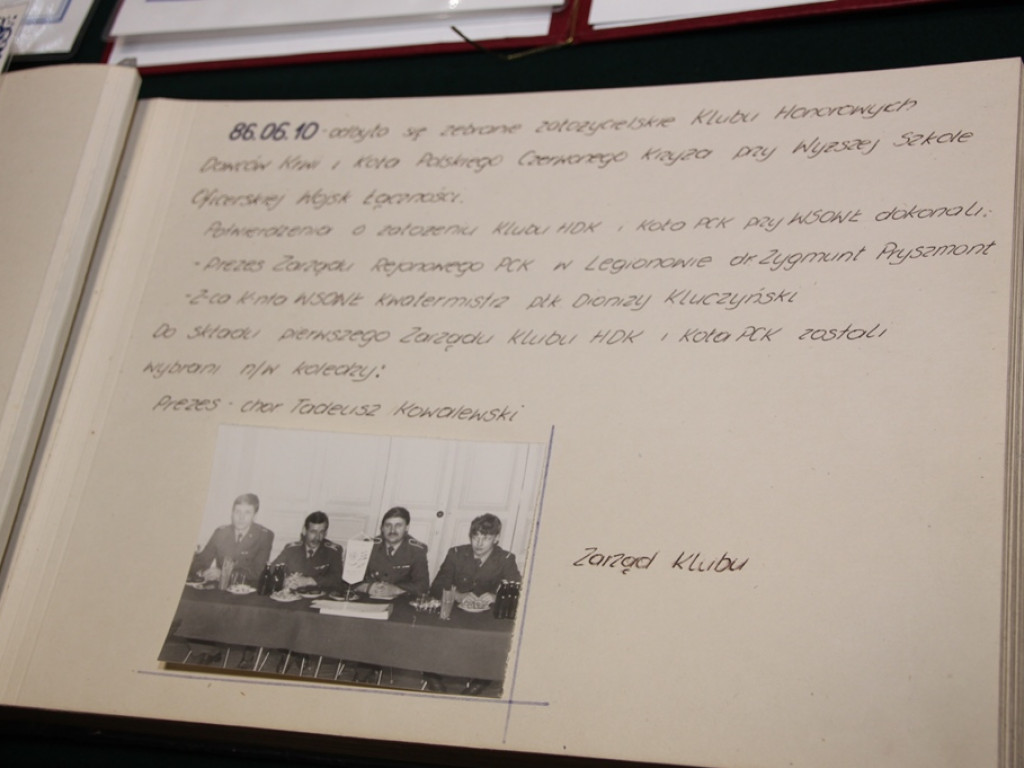 86.06.10 - odbyło się zebranie założycielskie Klubu Honorowych
Dawców Krwi i Koła Polskiego Czerwonego Krzyża przy Wyższej Szkole
Oficerskiej Wojsk Łączności.
Potwierdzenia o założeniu Klubu HDK i Koła PCK przy WSOWŁ dokonali:
- Prezes Zarządu Rejonowego PCK w Legionowie dr Zygmunt Pryszmont
- Z-ca K-nta WSOWŁ kwatermistrz płk Dionizy Kluczyński
Do składu pierwszego Zarządu Klubu HDK i Koła PCK zostali
wybrani n/w koledzy:
Prezes - chor Tadeusz Kowalewski
Zarząd Klubu